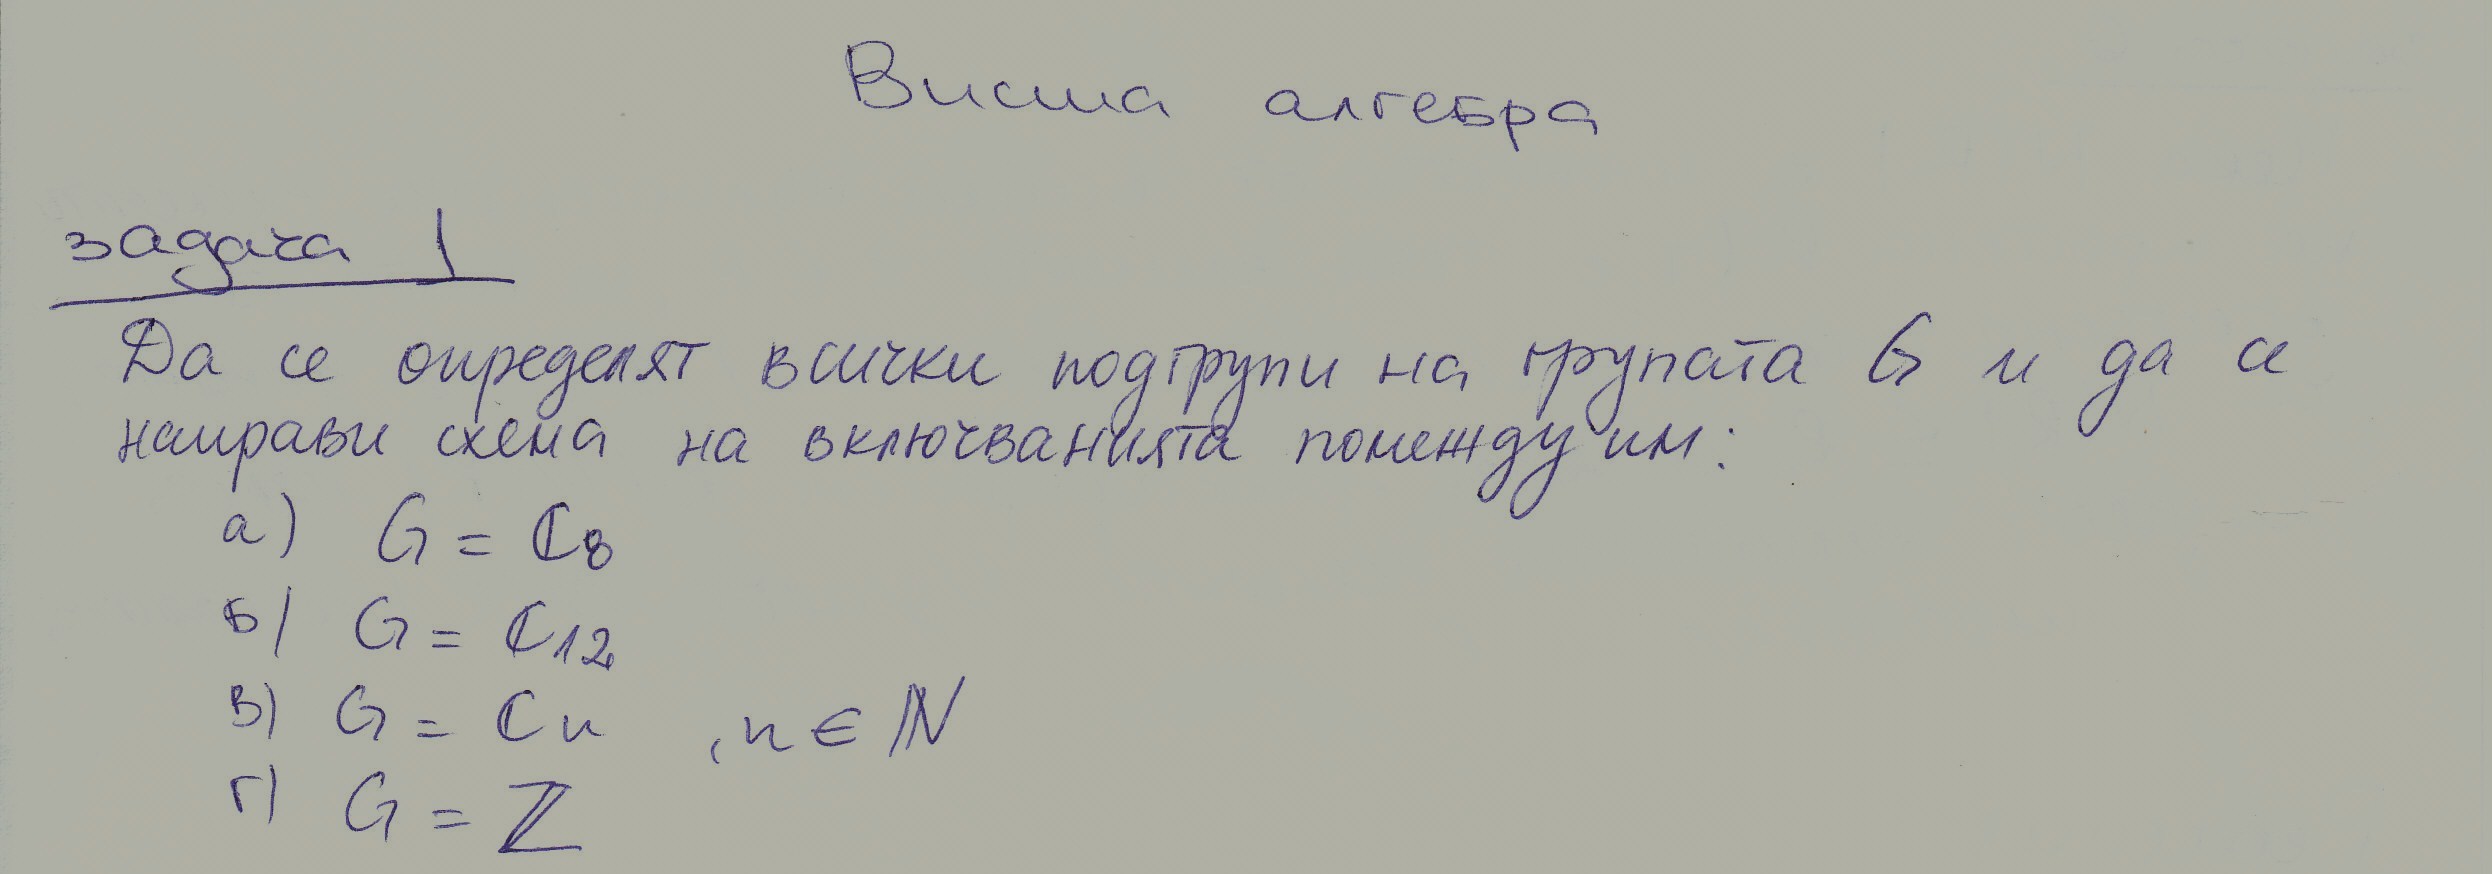 Висша алгебра
задача 1
Да се определят всички подгрупи на групата G и да се
направи схема на включванията помежду им:
а) G = ℂ₈
б) G = ℂ₁₂
в) G = ℂₙ , n ∈ ℕ
г) G = ℤ